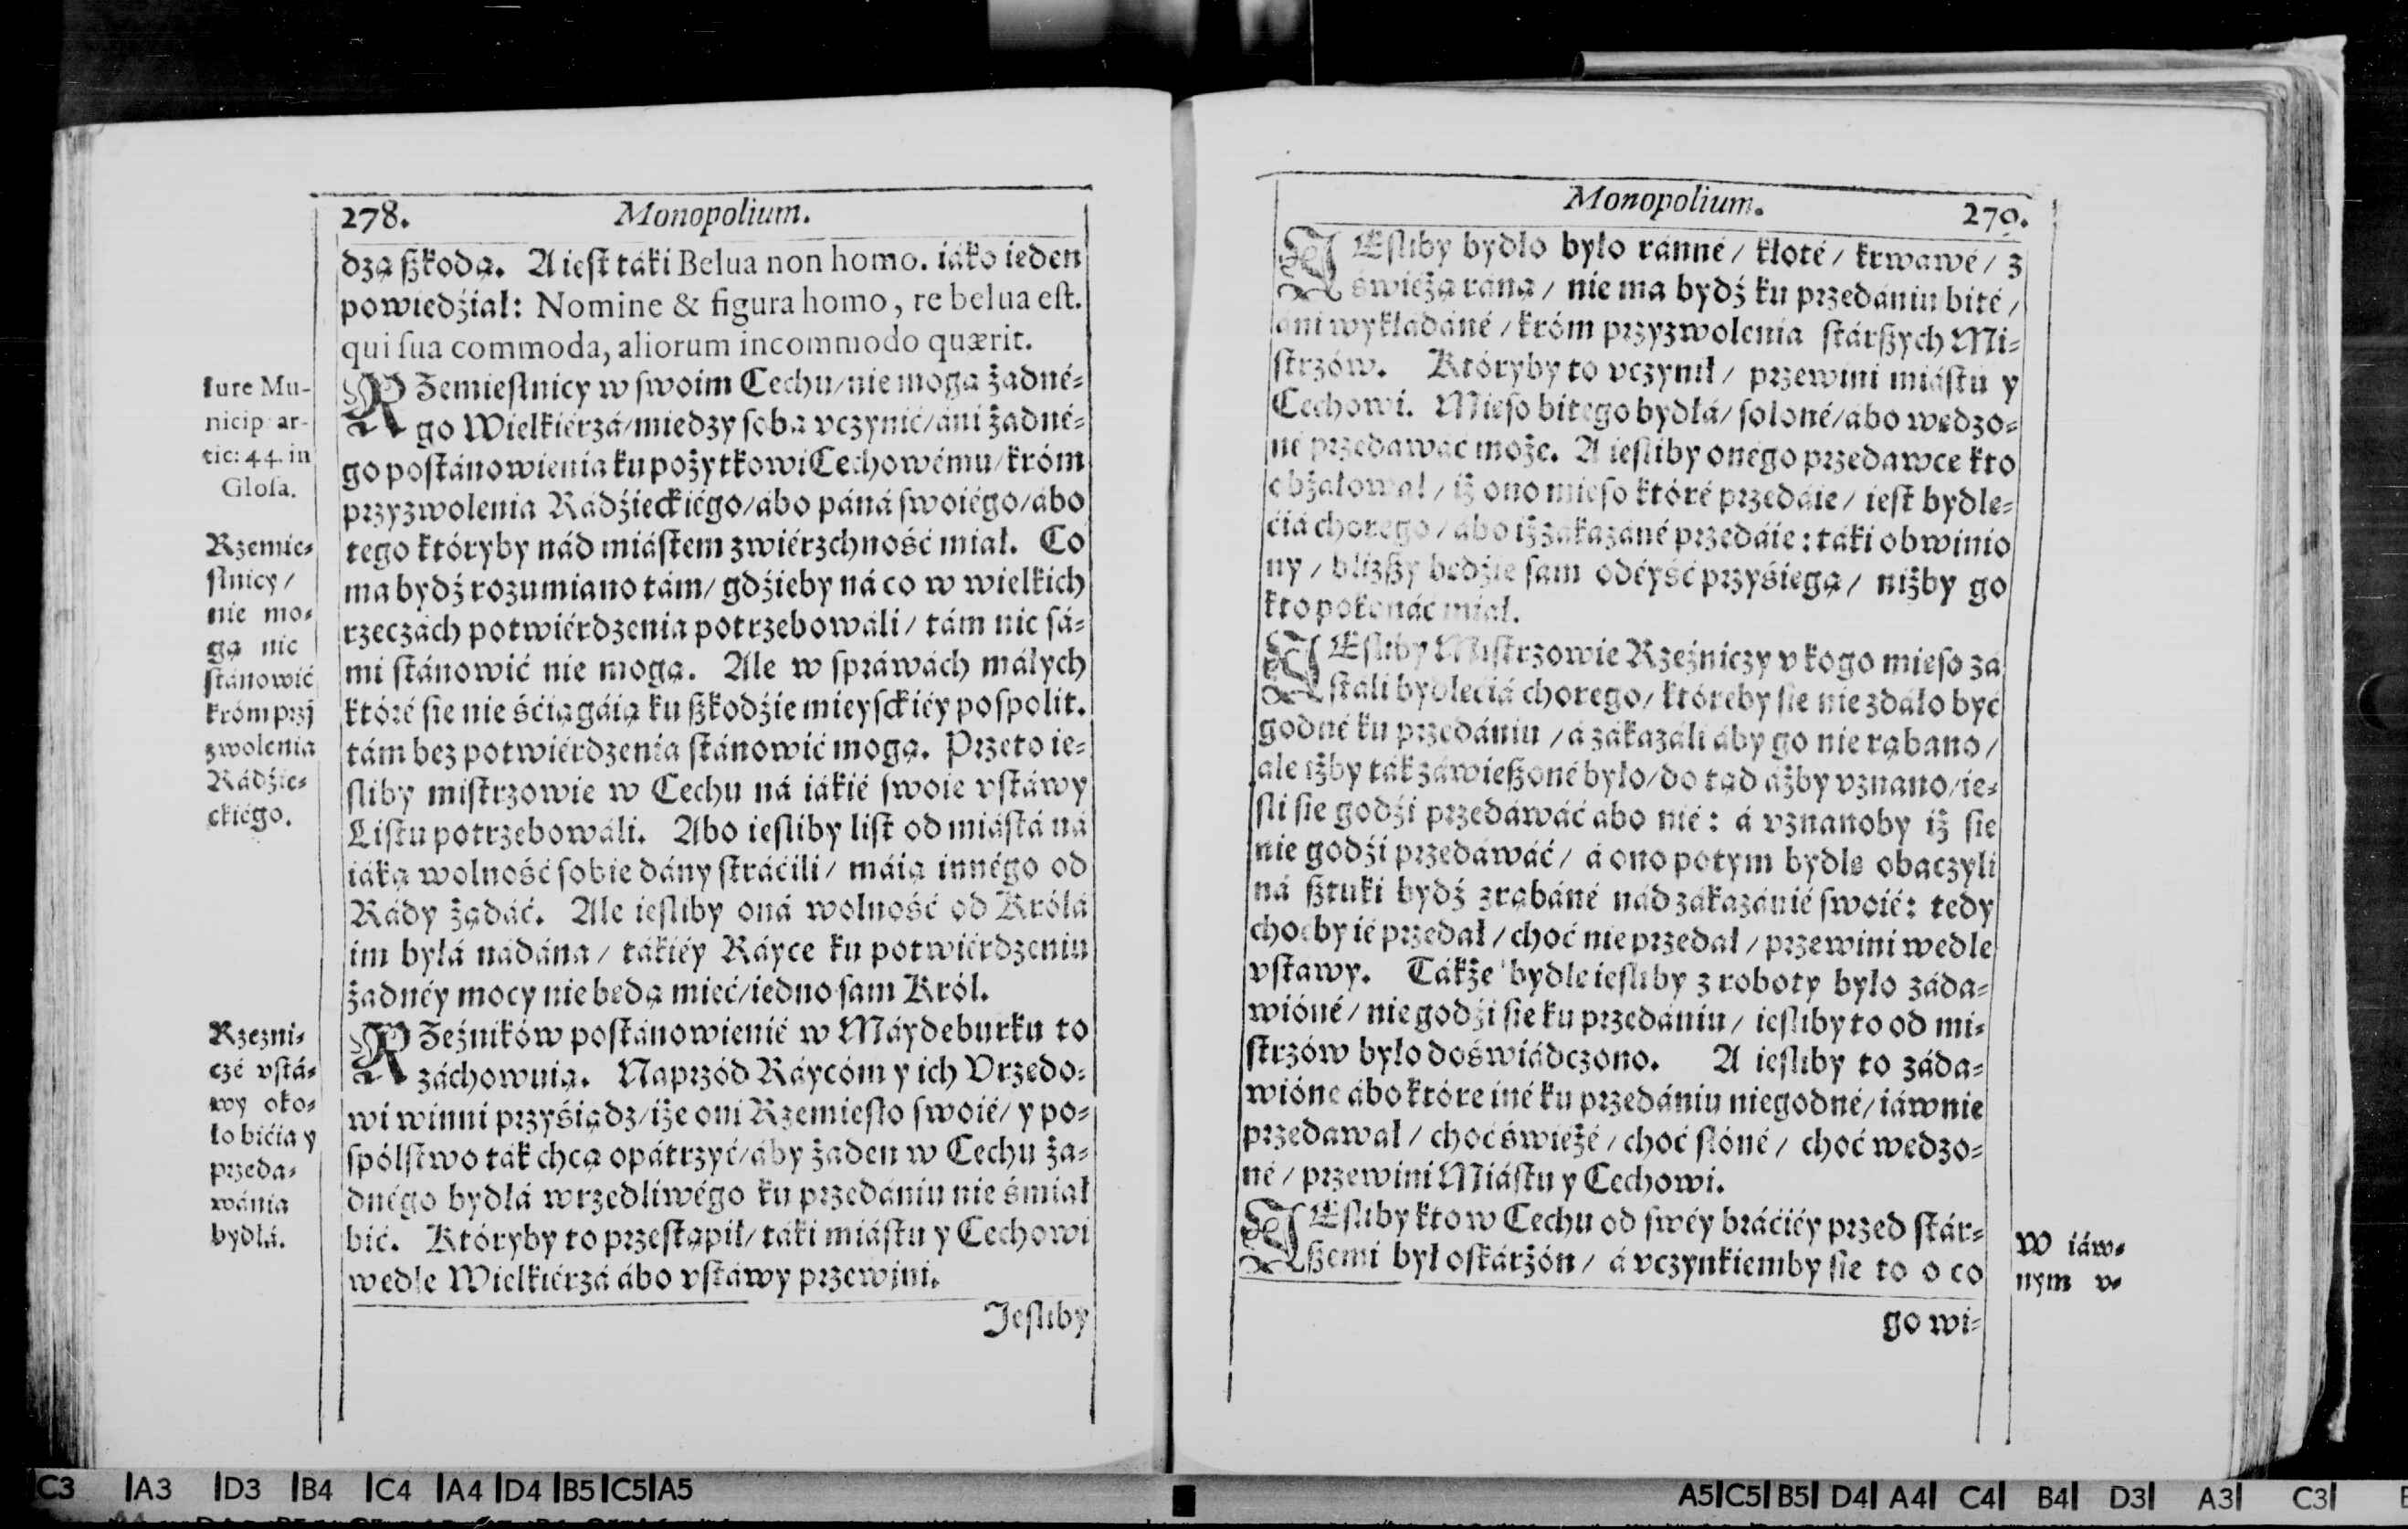 278. Monopolium.
dzą ſzkodą. A ieſt táki Belua non homo. iáko ieden
powiedźiał: Nomine & figura homo, re belua eſt.
qui ſua commoda, aliorum incommodo quærit.
RZemieſlnicy w ſwoim Cechu/nie mogą żadné-
go Wielkiérzá/miedzy ſobą vczynić/áni żadné-
go poſtánowienia ku pożytkowi Cechowému/króm
przyzwolenia Rádźieckiégo/ábo páná ſwoiégo/ábo
tego któryby nád miáſtem zwiérzchność miał. Co
ma bydź rozumiano tám/ gdźieby ná co w wielkich
rzeczách potwiérdzenia potrzebowáli/ tám nic sá-
mi ſtánowić nie mogą. Ale w ſpráwách máłych
któré ſie nie śćiągáią ku ſzkodźie mieyſckiéy poſpolit.
tám bez potwiérdzenia ſtánowić mogą. Przeto ie-
ſliby miſtrzowie w Cechu ná iákié ſwoie vſtáwy
Liſtu potrzebowáli. Abo ieſliby liſt od miáſtá ná
iáką wolność ſobie dány ſtráćili/ máią innégo od
Rády żądáć. Ale ieſliby oná wolność od Królá
im byłá nádána/ tákiéy Ráyce ku potwiérdzeniu
żadnéy mocy nie będą mieć/iedno ſam Król.
RZeźników poſtánowienié w Máydeburku to
záchowuią. Naprzód Ráycóm y ich Vrzedo-
wi winni przyśiądz/iże oni Rzemieſło ſwoié/ y po-
ſpólſtwo ták chcą opátrzyć/áby żaden w Cechu ża-
dnégo bydłá wrzedliwégo ku przedániu nie śmiał
bić. Któryby to przeſtąpił/ táki miáſtu y Cechowi
wedle Wielkiérzá ábo vſtáwy przewini.
Ieſliby
Iure Mu-
nicip: ar-
tic: 44. in
Gloſa.
Rzemie-
ſlnicy/
nie mo-
gą nic
ſtánowić
króm przÿ
zwolenia
Rádźie-
ckiégo.
Rzezni-
czé vſtá-
wy oko-
ło bićia y
przeda-
wánia
bydłá.
Monopolium. 279.
IEſliby bydło było ránné/ kłoté/ krwawé/ z
świéżą ráną/ nie ma bydź ku przedániu bité/
áni wykładáné/ króm przyzwolenia ſtárſzych Mi-
ſtrzów. Któryby to vczynił/ przewini miáſtu y
Cechowi. Mięſo bitego bydłá/ ſoloné/ábo wędzo-
né przedawáć może. A ieſliby onégo przedawce kto
obżałował/ iż ono mięſo któré przedáie/ ieſt bydle-
ćiá chorego/ ábo iż zakazáné przedáie: táki obwinio
ny/ bliżſzy bedźie ſam odéyść przyśiegą/ niżby go
kto pokonáć miał.
IEſliby Miſtrzowie Rzeźniczy v kogo mięſo zá
ſtáli bydlećiá chorego/ któreby ſie nie zdáło być
godné ku przedániu/ á zákazáli áby go nie rąbano/
ale iżby ták záwieſzoné było/do tąd áżby vznano/ie-
ſli ſie godźi przedáwáć abo nié: á vznanoby iż ſie
nie godźi przedáwáć/ á ono potym bydle obaczyli
ná ſztuki bydź zrąbáné nád zákazánié ſwoié: tedy
choćby ié przedał/ choć nie przedał/ przewini wedle
vſtawy. Tákże bydle ieſliby z roboty było záda-
wióné/ nie godźi ſie ku przedániu/ ieſliby to od mi-
ſtrzów było doświádczono. A ieſliby to záda-
wióne ábo któré iné ku przedániu niegodné/ iáwnie
przedawał/ choć świéżé/ choć ſłóné/ choć wedzo-
né/ przewini Miáſtu y Cechowi.
IEſliby kto w Cechu od ſwéy bráćiéy przed ſtár-
ſzemi był oſkárżón/ á vczynkiemby ſie to o co
go wi-
W iáw-
nym v-
C3 A3 D3 B4 C4 A4 D4 B5 C5 A5
A5 C5 B5 D4 A4 C4 B4 D3 A3 C3